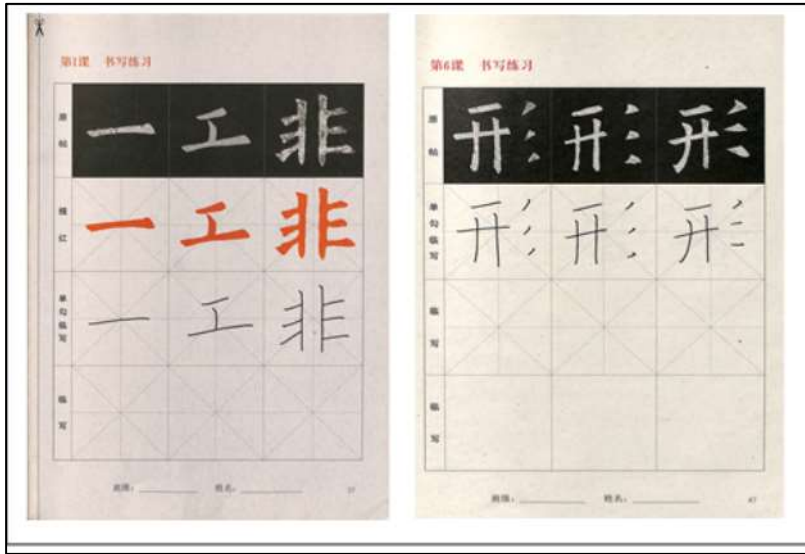 第1课 书写练习
原帖
一 工 非
描红
一 工 非
单勾临写
一 工 非
临写
班级：________ 姓名：________
37
第6课 书写练习
原帖
形 形 形
单勾临写
形 形 形
临写
临写
班级：________ 姓名：________
47